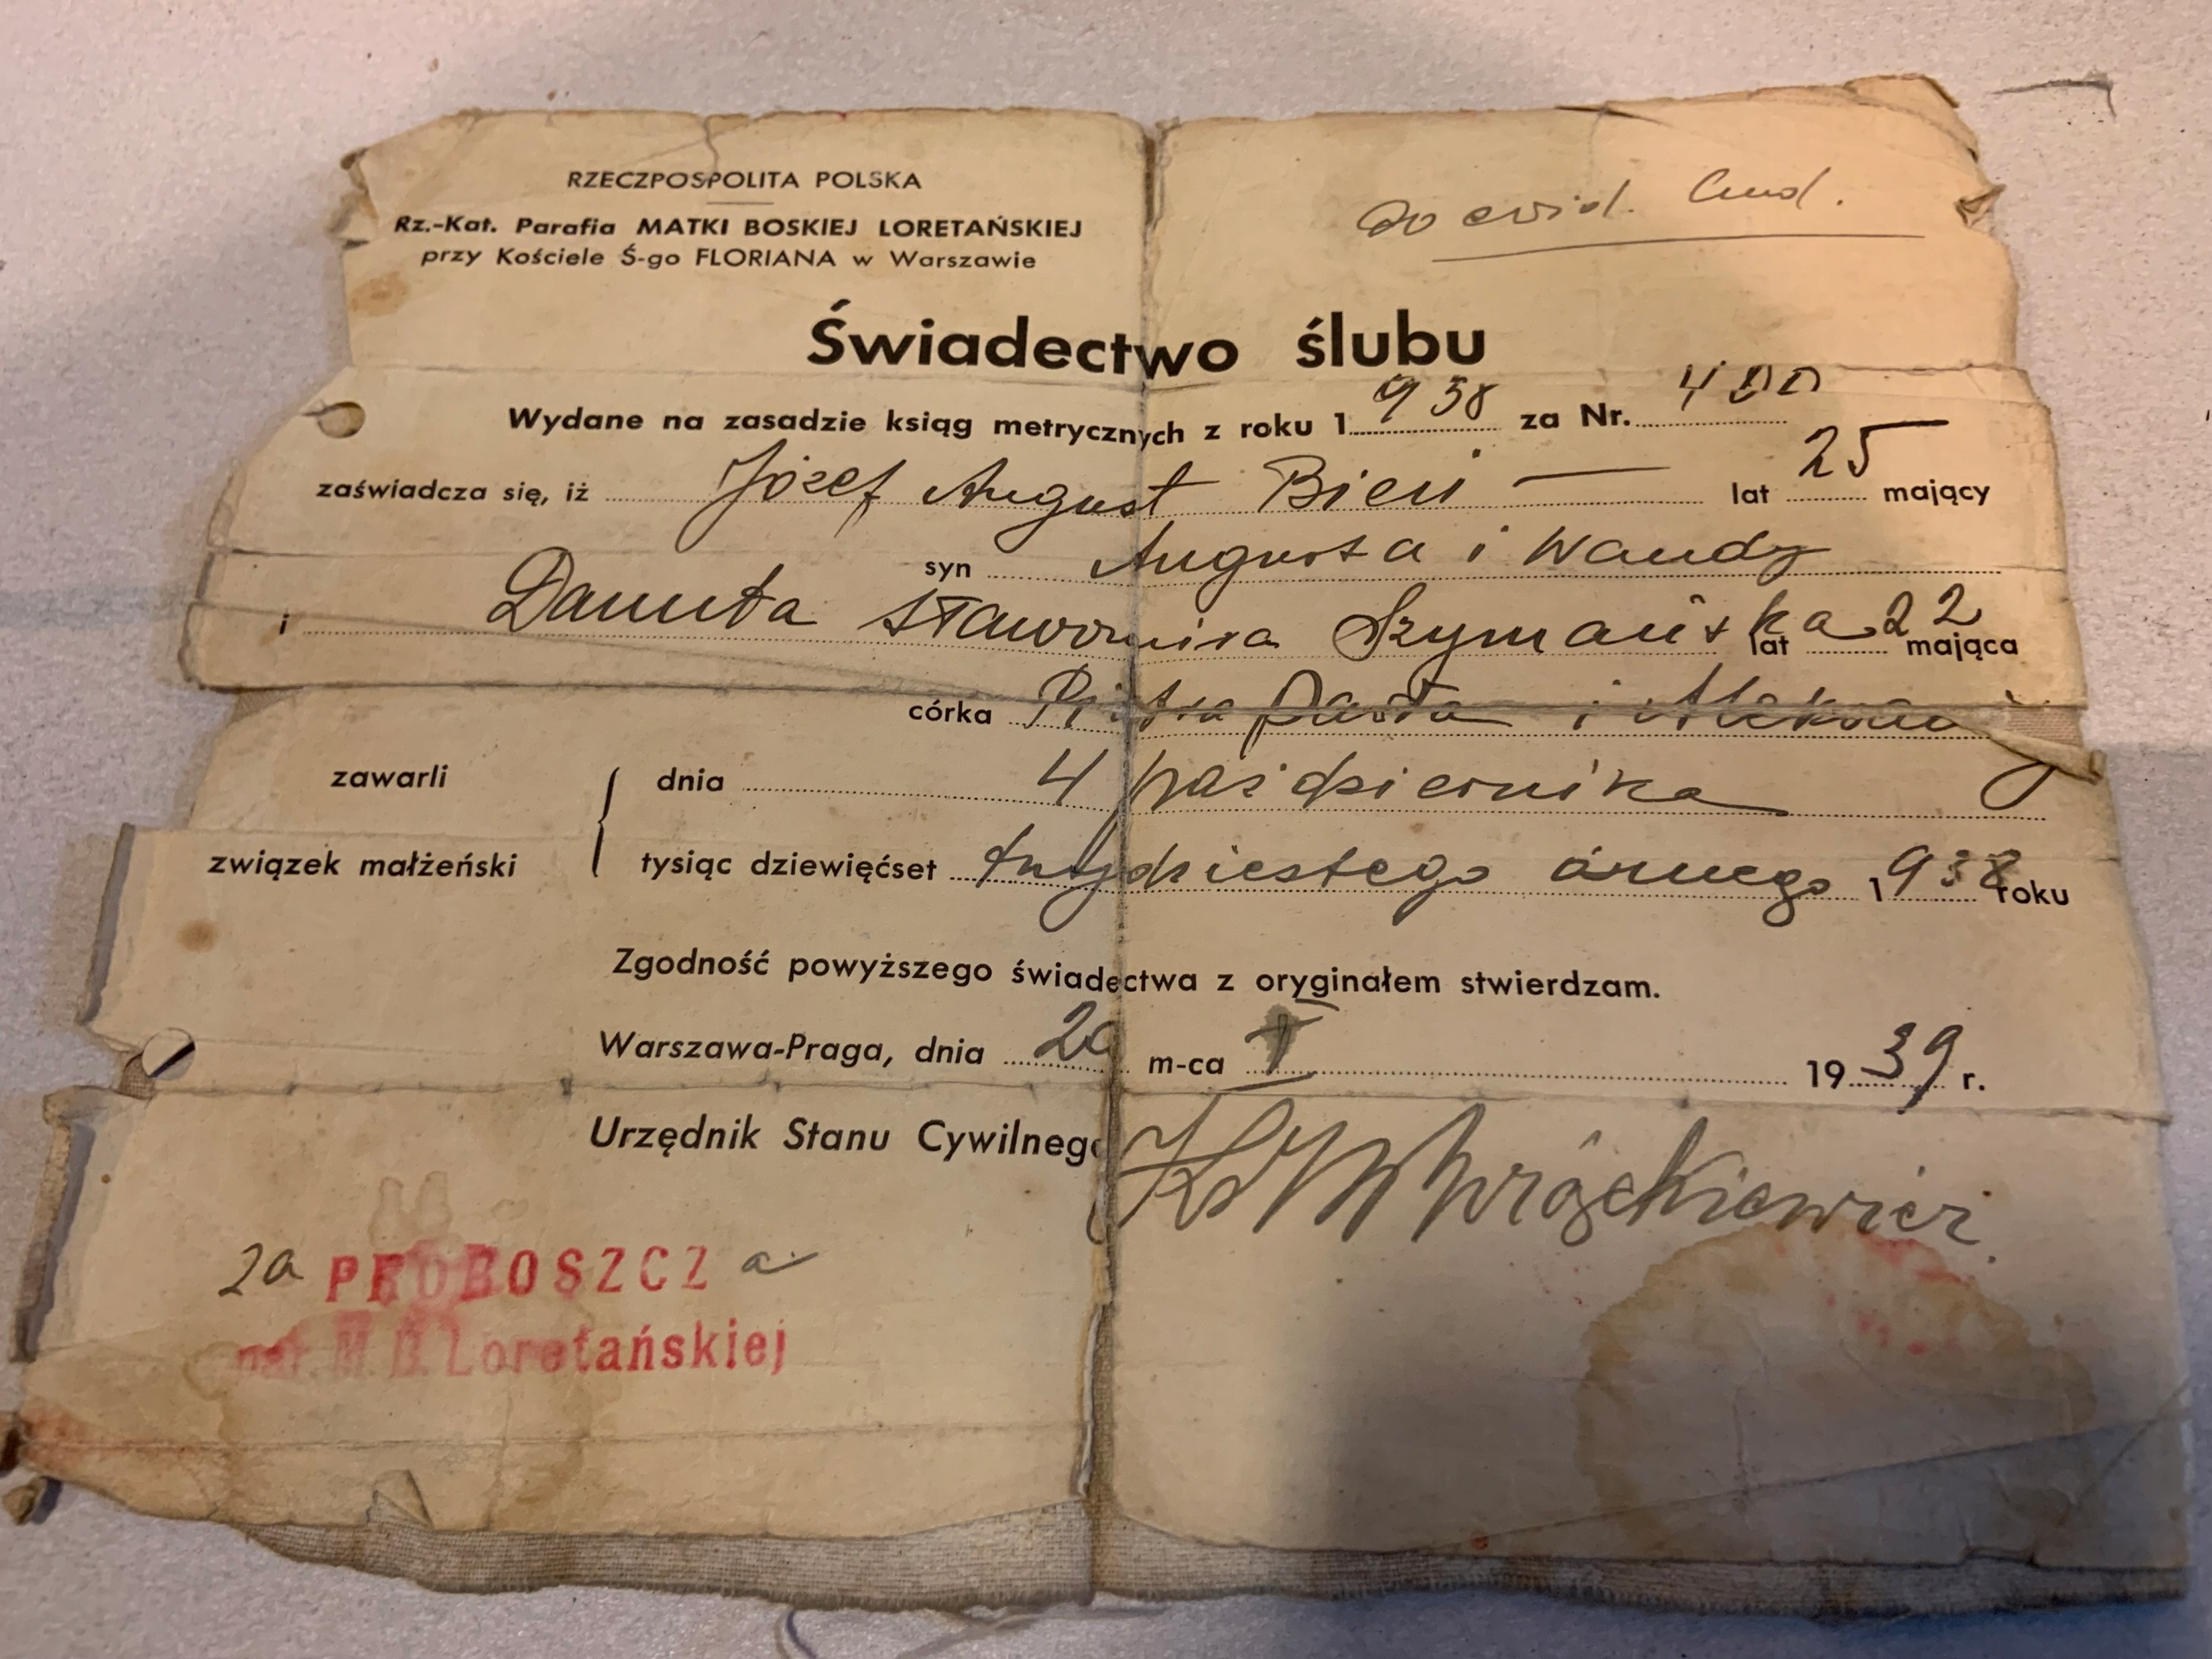 RZECZPOSPOLITA POLSKA
Rz.-Kat. Parafia MATKI BOSKIEJ LORETAŃSKIEJ
przy Kościele Ś-go FLORIANA w Warszawie
Do ewid.
Świadectwo ślubu
Wydane na zasadzie ksiąg metrycznych z roku 1938 za Nr. 400
zaświadcza się, iż Józef August Bieri — lat 25 mający
syn Augusta i Wandy
i Danuta Sławomira Szymańska lat 22 mająca
córka Piotra Pawła i
zawarli dnia 4 października
związek małżeński tysiąc dziewięćset trzydziestego ósmego 1938 roku
Zgodność powyższego świadectwa z oryginałem stwierdzam.
Warszawa-Praga, dnia 20 m-ca I 1939 r.
Urzędnik Stanu Cywilnego
za PROBOSZCZ a
par. M. B. Loretańskiej